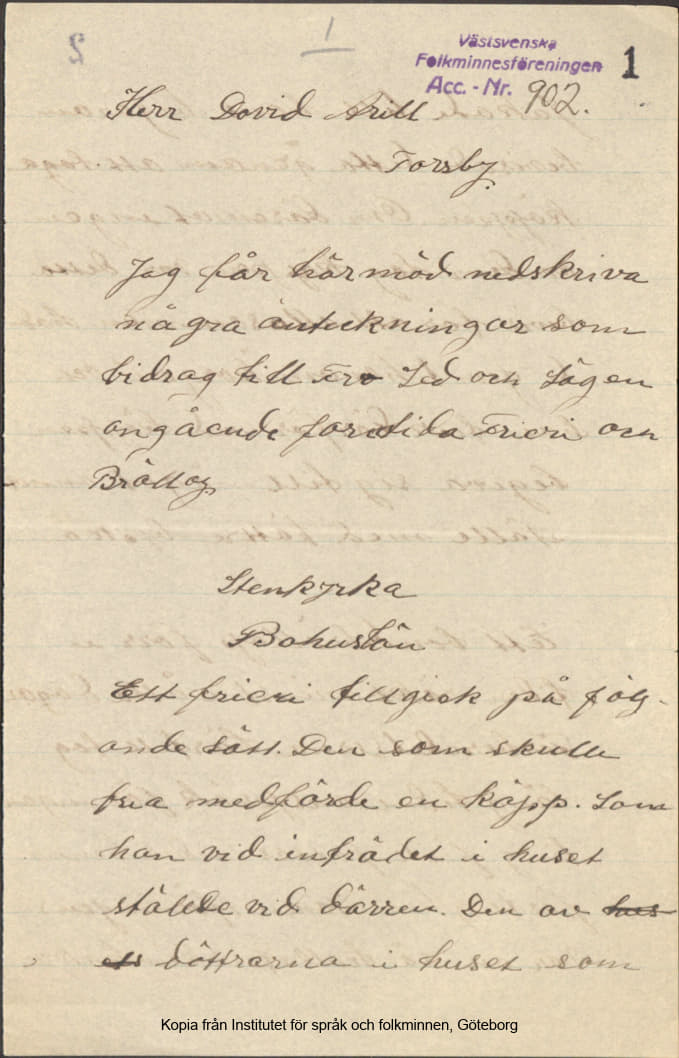 1
Västsvenska
Folkminnesföreningen
Acc. - Nr. 902.
1
2
Herr David Arill
Forsby.
Jag får härmed nedskriva
några anteckningar som
bidrag till Tro Sed och Sägen
angående forntida Frieri och
Bröllop
Stenkyrka
Bohuslän
Ett frieri tillgick på följ-
ande sätt. Den som skulle
fria medförde en käpp. Som
han vid inträdet i huset
ställde vid dörren. Den av hus
ets döttrarna i huset som
Kopia från Institutet för språk och folkminnen, Göteborg